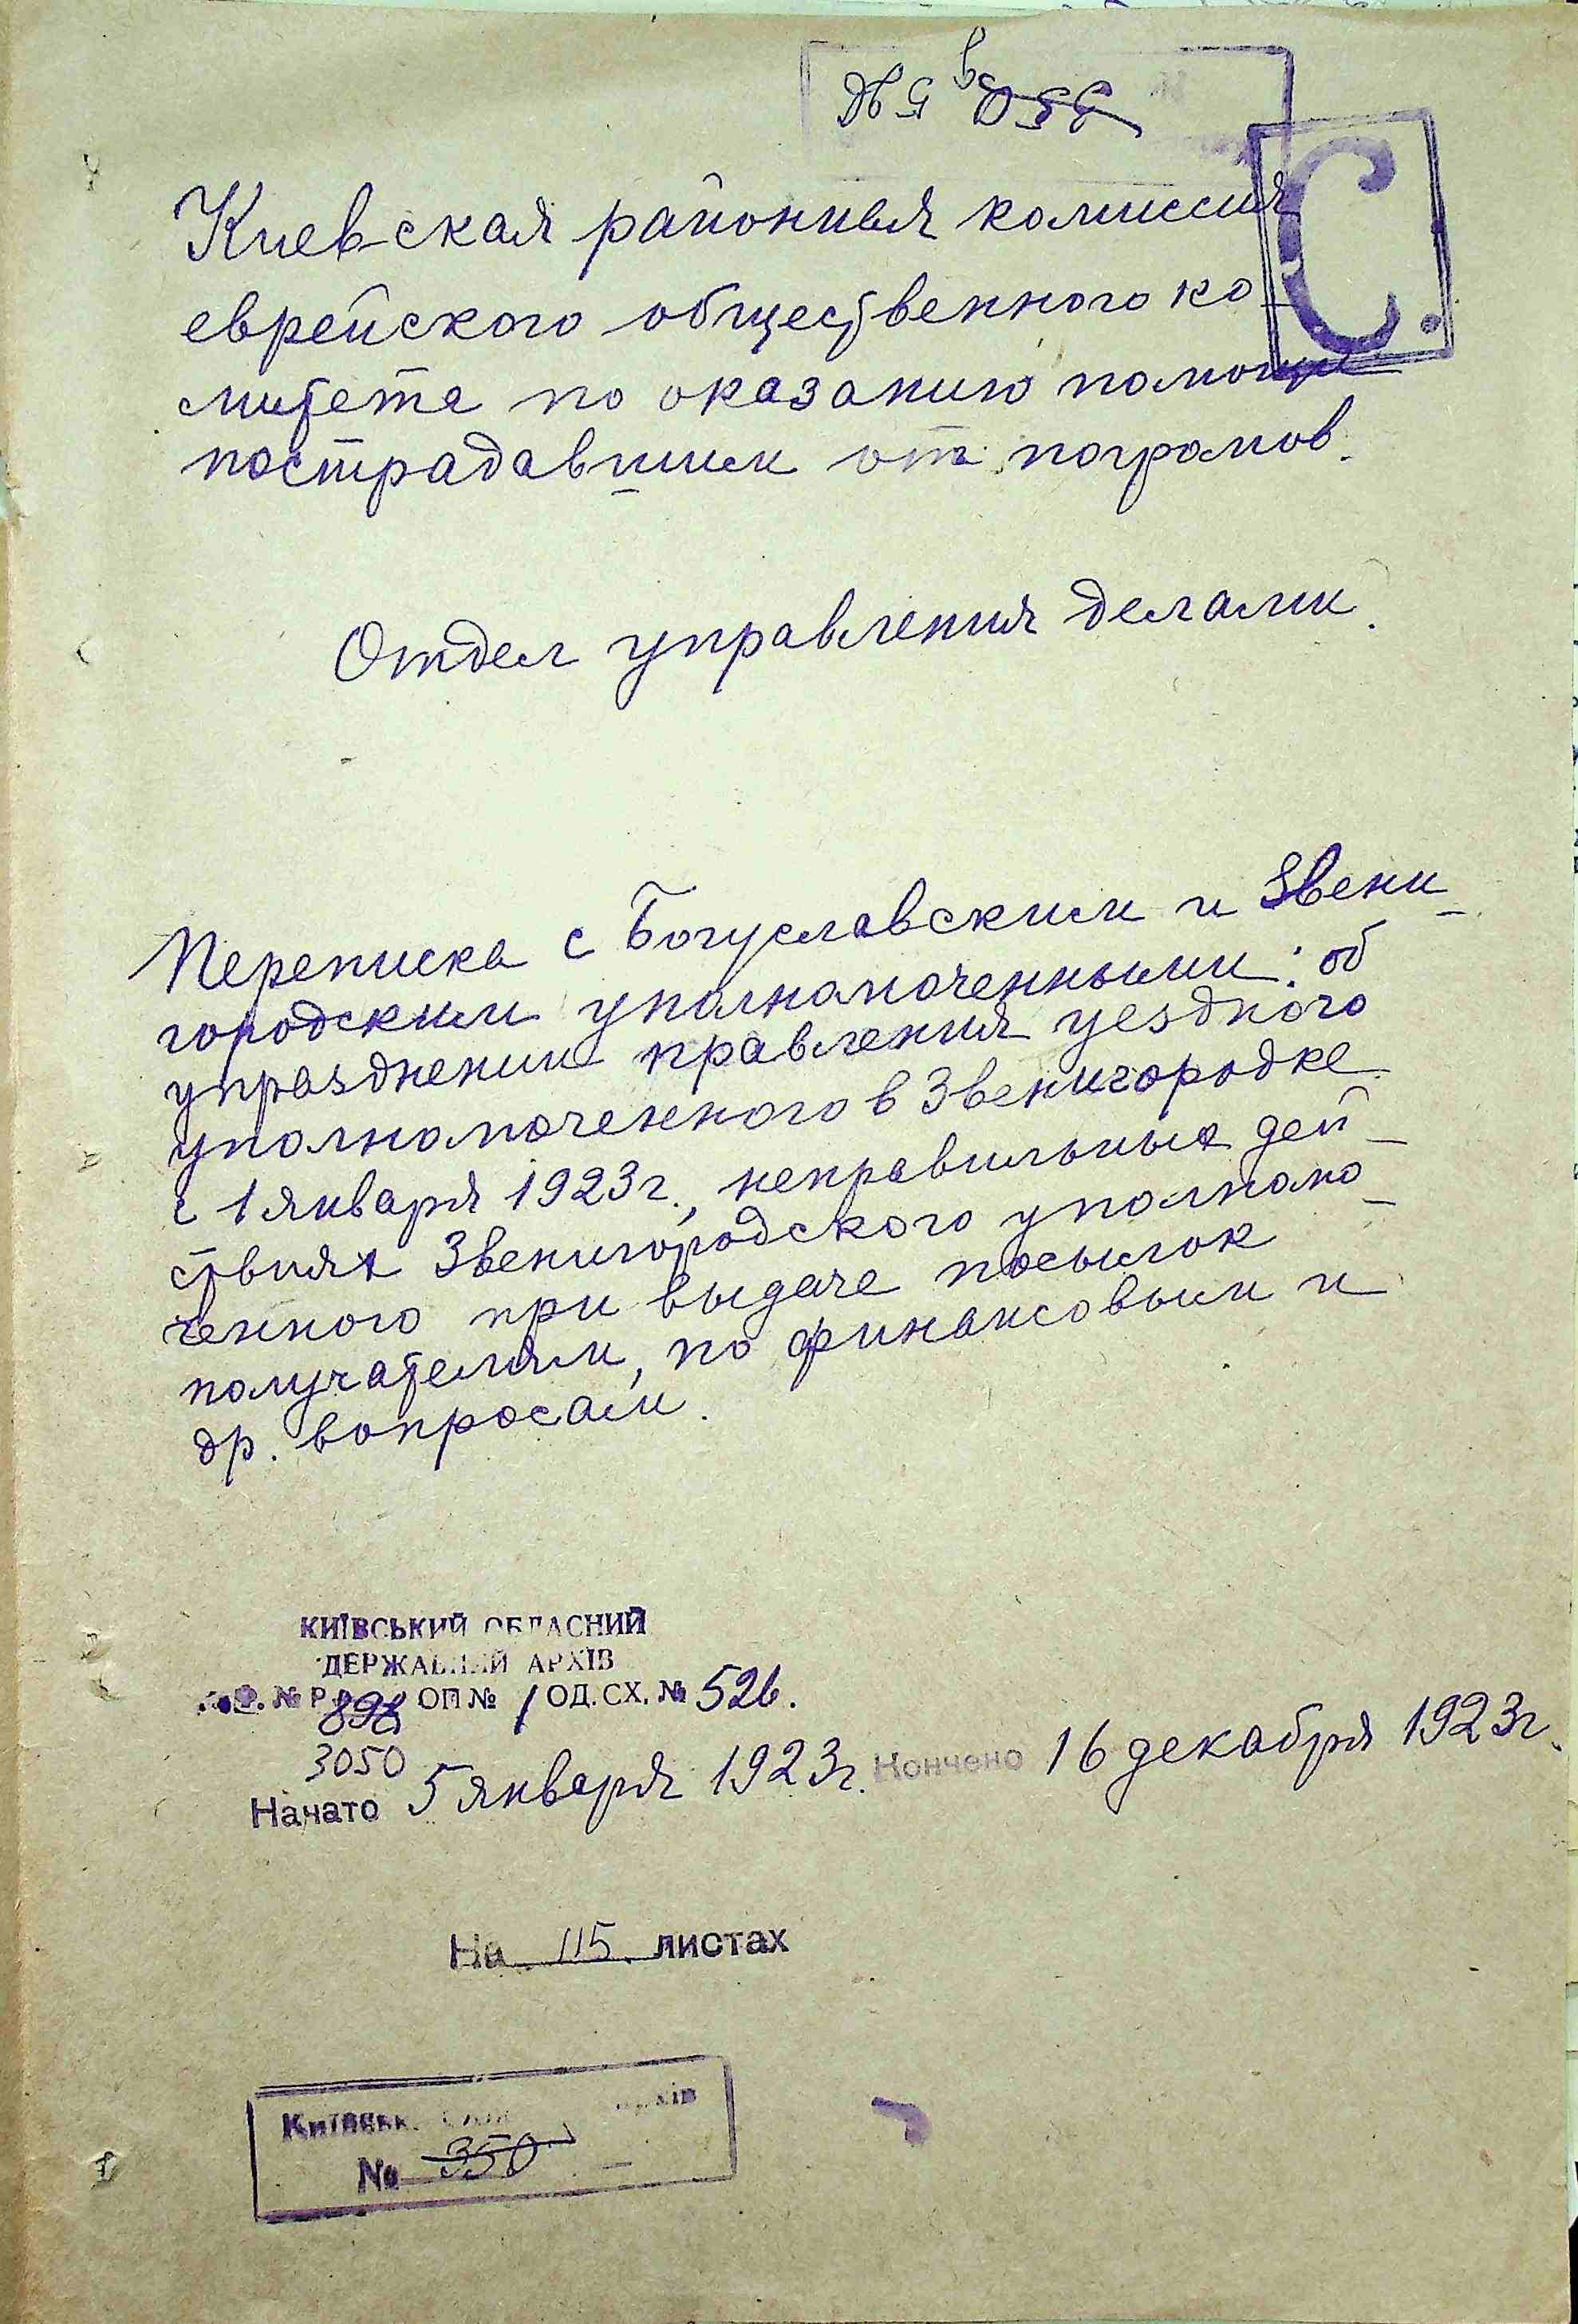 С.
Киевская районная комиссия
еврейского общественного ко-
митета по оказанию помощи
пострадавшим от погромов.
Отдел управления делами.
Переписка с Богуславским и Звени-
городским уполномоченными: об
упразднении правления уездного
уполномоченного в Звенигородке
с 1 января 1923 г., неправильных дей-
ствиях Звенигородского уполномо-
ченного при выдаче посылок
получателям, по финансовым и
др. вопросам.
КИЇВСЬКИЙ ОБЛАСНИЙ
ДЕРЖАВНИЙ АРХІВ
Ф. № Р 898 ОП № 1 ОД. СХ. № 526.
3050
Начато 5 января 1923 г. Кончено 16 декабря 1923 г.
На 115 листах
№ 350